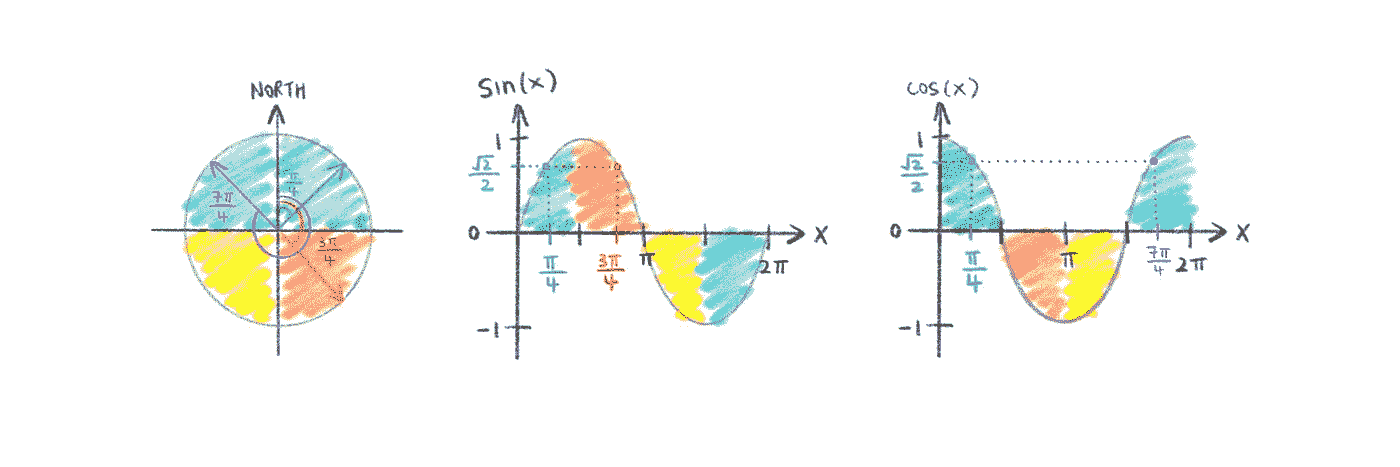 NORTH
π/4
7π/4
3π/4
Sin(x)
1
√2/2
0
-1
π/4
3π/4
π
2π
X
cos(x)
1
√2/2
0
-1
π/4
π
7π/4
2π
X